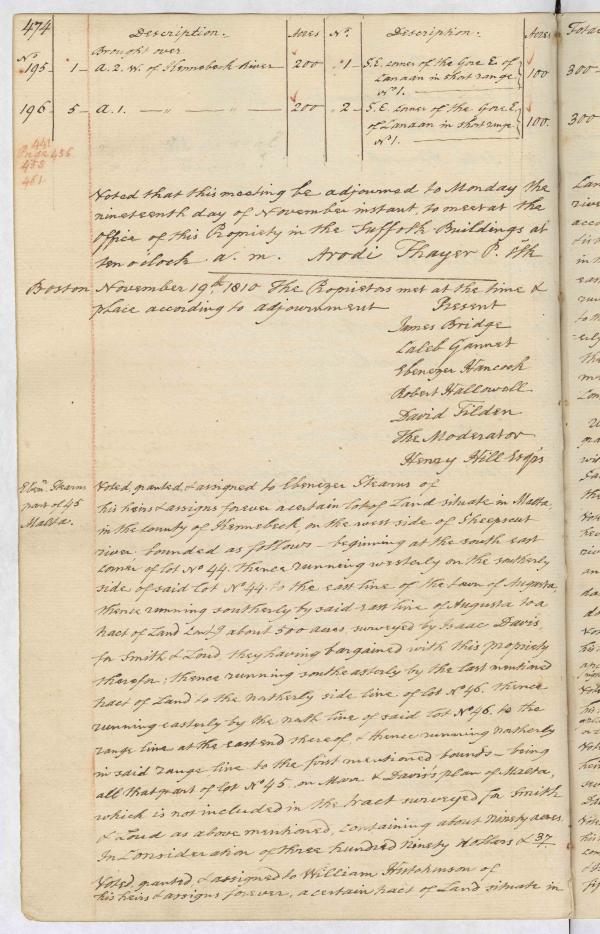 474
Description. Acres No. Description. Acres Total
No Brought over
195 1 A. 2. W. of Kennebeck River 200 1 S.E. corner of the Gore E. of
Canaan in short range 100 300
No 1.
196 5 A. 1. " " 200 2 S.E. corner of the Gore E.
of Canaan in short range 100. 300
No 1.
441
Page 456
475
461
Voted that this meeting be adjourned to Monday the
nineteenth day of November instant, to meet at the
Office of this Propriety in the Suffolk Buildings at
ten o'clock a. m. Arodi Thayer P. Clk
Boston November 19th 1810 The Propietors met at the time &
place according to adjournment Present
James Bridge
Caleb Gannet
Ebenezer Hancock
Robert Hallowell
David Tilden
The Moderator
Henry Hill Esqrs
Ebenr. Stearns
part of 45
Malta.
Voted, granted, & assigned to Ebenezer Stearns of
his heirs & assigns forever a certain lot of Land situate in Malta,
in the County of Kennebeck on the west side of Sheepscut
river bounded as follows - beginning at the south east
corner of lot No 44. thence running westerly on the southerly
side of said lot No 44. to the east line of the town of Augusta,
thence running southerly by said east line of Augusta to a
tract of Land contg about 500 acres surveyed by Isaac Davis
for Smith & Loud, they having bargained with this propriety
therefor; thence running southeasterly by the last mentioned
tract of Land to the northerly side line of lot No 46. thence
running easterly by the north line of said lot No 46. to the
range line at the east end thereof, & thence running northerly
in said range line to the first mentioned bounds - being
all that part of lot No 45. on Marr & Davis's plan of Malta,
which is not included in the tract surveyed for Smith
& Loud as above mentioned, containing about Ninety acres
In Consideration of three hundred Ninety dollars & 37/
Voted, granted, & assigned to William Hutchinson of
his heirs & assigns forever, a certain tract of Land situate in